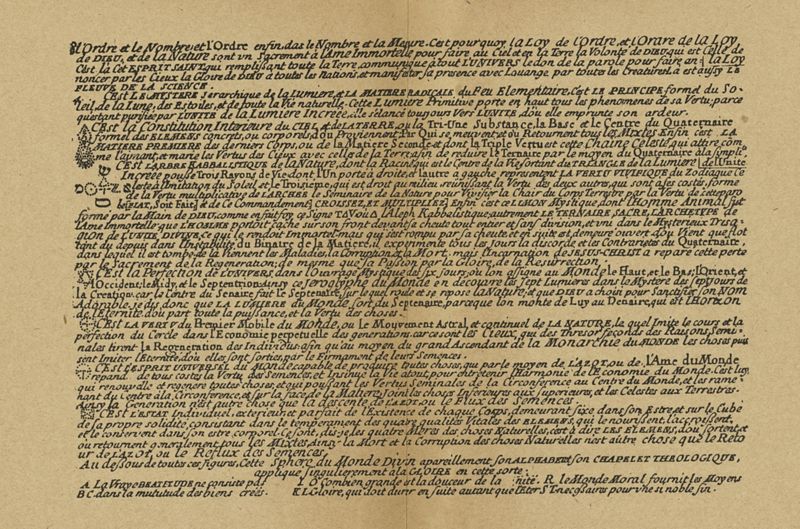 l'Ordre et le Nombre, et l'Ordre enfin, das le Nombre et la Mesure. C'est pour quoy la Loy de l'Ordre, et l'Ordre de la Loy
de DIEU, et de la Nature sont un Sacrement a l'Ame Immortelle pour faire au Ciel et en la Terre la Volonte de DIEU qui est Celle de
C'est la Cet ESPRIT SAINT, qui remplissant toute la Terre, communique a tout l'UNIVERS le don de la parole pour faire la Loy
noncer par les Cieux la Gloire de DIEU a toutes les Nations, et manifester sa presence avec Louange par toutes les Creatures. Il a est aussy LE
FLEUVE DE LA SCIENCE.
C'EST LE MYSTERE Serarchique de la Lumiere, et LA MATIERE RADICALE du Feu Elementaire. C'est LE PRINCIPE formel du So-
leil, de la Lune, des Estoiles, et de toute la Vie naturelle. Cette Lumiere Primitive porte en haut tous les phenomenes de sa Vertu; parce
qu'estant purifiée par l'UNITE de la Lumiere Increée, elle s'elance toujours Vers l'UNITE, dou elle emprunte son ardeur.
C'est la Constitution Interieure du CIEL, et de LATERRE, ou la Tri-Une Substance, la Base et le Centre du Quaternaire
formel des ELEMENS concrets, ou corporels, dou Proviennent, Par Qui se meuvent, et ou Retournent tous les Mixtes Enfin c'est LA
MATIERE PREMIERE des derniers Corps, ou de la Matiere Seconde, et dont la Triple Vertu est cette Chaine Celeste, qui attire com-
me l'aymant, et marie les Vertus des Cieux avec celles de la Terre, afin de reduire le Ternaire par le moyen du Quaternaire a la simpli.
C'EST L'ARBRE CABALISTIQUE de la Nature, dont la Racine, qui est le Centre de la Vie, sortant du TRIANGLE de la Lumiere de l'Unite
Increée pousse Trois Rayons de Vie, dont l'Un porte a droite, et l'autre a gauche, representent LA VERTU VIVIFIQUE du Zodiaque Ce-
leste a l'imitation du Soleil, et le Troisieme, qui est droit au milieu, reünissant la Vertu des deux autres, qui sont a ses costés, forme
de la Vertu multiplicative de L'ARCHE le Seminaire de la Nature pour Vivifier la Chair du Corps Terrestre par la Vertu de cet
FIAT, Soit Fait; et de ce Commandement, CROISSEZ, ET MULTIPLIEZ. Enfin c'est ce Mystique, dont l'Homme Animal fut
formé par la Main de DIEU, comme ce Signe l'Aleph Kabbelistique, autrement LE TERNAIRE SACRE, L'ARCHETYPE de
l'Ame Immortelle que l'HOMME portoit caché sur son front devant sa cheute tout entier et sans division, et uni dans le Mysterieux
de L'UNITE DIVINE, ce qui le rendoit Immortel, mais qui s'est rompu par sa cheute, et en suite est demeure ouvert. dou Vient que flot
tant du depuis dans l'Instabilité du Binaire de la Matiere, il experimente tous les Jours la discorde et les Contrarietés du Quaternaire,
dans lequel il est tombé de la Viennent les Maladies, la Corruption, la Mort. mais l'Incarnation de JESUS-CHRIST a reparé cette perte
par le Sacrement de la Regeneration; de mesme que sa Passion par la Gloire de la Resurrection.
C'Est la Perfection de L'UNIVERS dans l'Ouvrage Mystique des six jours; ou l'on assigne au Monde le Haut, et le Bas; l'Orient, et
l'Occident; le Midy, et le Septentrion. Ainsy ce Jeroglyphe du Monde en decouvre les sept Lumieres dans le Mystere des sept jours de
la Creation, car le Centre du Senaire fait le Septenaire, sur le quel roule et se repose la Nature, et que DIEU a choisi pour Sanctifier son Nom
Adorable. Je dis donc que LA LUMIERE DU MONDE sort du Septenaire, parce que l'on monte de Luy au Denaire, qui est l'HORIZON
de l'Eternité, dou part toute la puissance, et la Vertu des choses.
C'EST LA VERTU du Premier Mobile du Monde, ou le Mouvement Astral, et continuel de LA NATURE, la quel Imite le cours et la
perfection du Cercle dans l'Economie perpetuelle des generations. car ce sont les Cieux, qui des Thresor feconds des Raisons Semi-
nales tirent la Regeneration des Individus, afin qu'au moyen du grand Ascendant de la Monarchie DU MONDE les choses puis
sent Imiter l'Eternité, dou elles sont sorties par le Firmament de leurs Semences.
C'EST L'ESPRIT UNIVERSEL du Monde, capable de produire toutes choses, qui par le moyen de l'AZOT, ou de l'Ame du Monde
repand de tous costés la Vertu des Semences, et Insinue la Vie atout, pour entretenir l'Harmonie de l'Economie du Monde. C'est luy,
qui renouvelle et regenere toutes choses, et qui poussant les Vertus Seminales de la Circonference au Centre du Monde, et les rame-
nant du Centre a la Circonference, et sur la face de la Matiere, joint les choses Inferieures aux superieures, et les Celestes aux Terrestres.
Ainsy la Generation n'est autre chose que la descente de l'AZOT, ou le Flux des Semences.
C'EST L'ESTAT Individuel, exterieur, et parfait de l'Existence de chaque Corps, demeurant fixe dans son Estre, et sur le Cube
de sa propre solidité, consistant dans le temperament des quatre qualités Vitales des ELEMENS, qui le nourissent, l'accroissent,
et le conservent dans son estre corporel. Ce sont, dis-je, les quatre Meres des choses Naturelles, c'est a dire LES ELEMENS, dou sortent, et
ou retournent corporalement tous les Mixtes. Ainsy la Mort et la Corruption des choses Naturelles n'est autre chose que le Reto
ur de l'AZOT, ou le Reflux des Semences.
Au dessous de toutes ces figures, Cette Sphere du Monde Divin appareillement son ALPHABET et son CHAPELET THEOLOGIQUE,
applique singulierement a la GLOIRE en cette sorte.
A La Vraye BEATITUDE ne consiste pas L O Combien grande et la douceur de la R le Monde Moral fournit les Moyens
B C. dans la multitude des biens creés. K L Gloire, qui doit durir en suite autant que l'Eter S T. necessaires pour une si noble fin.